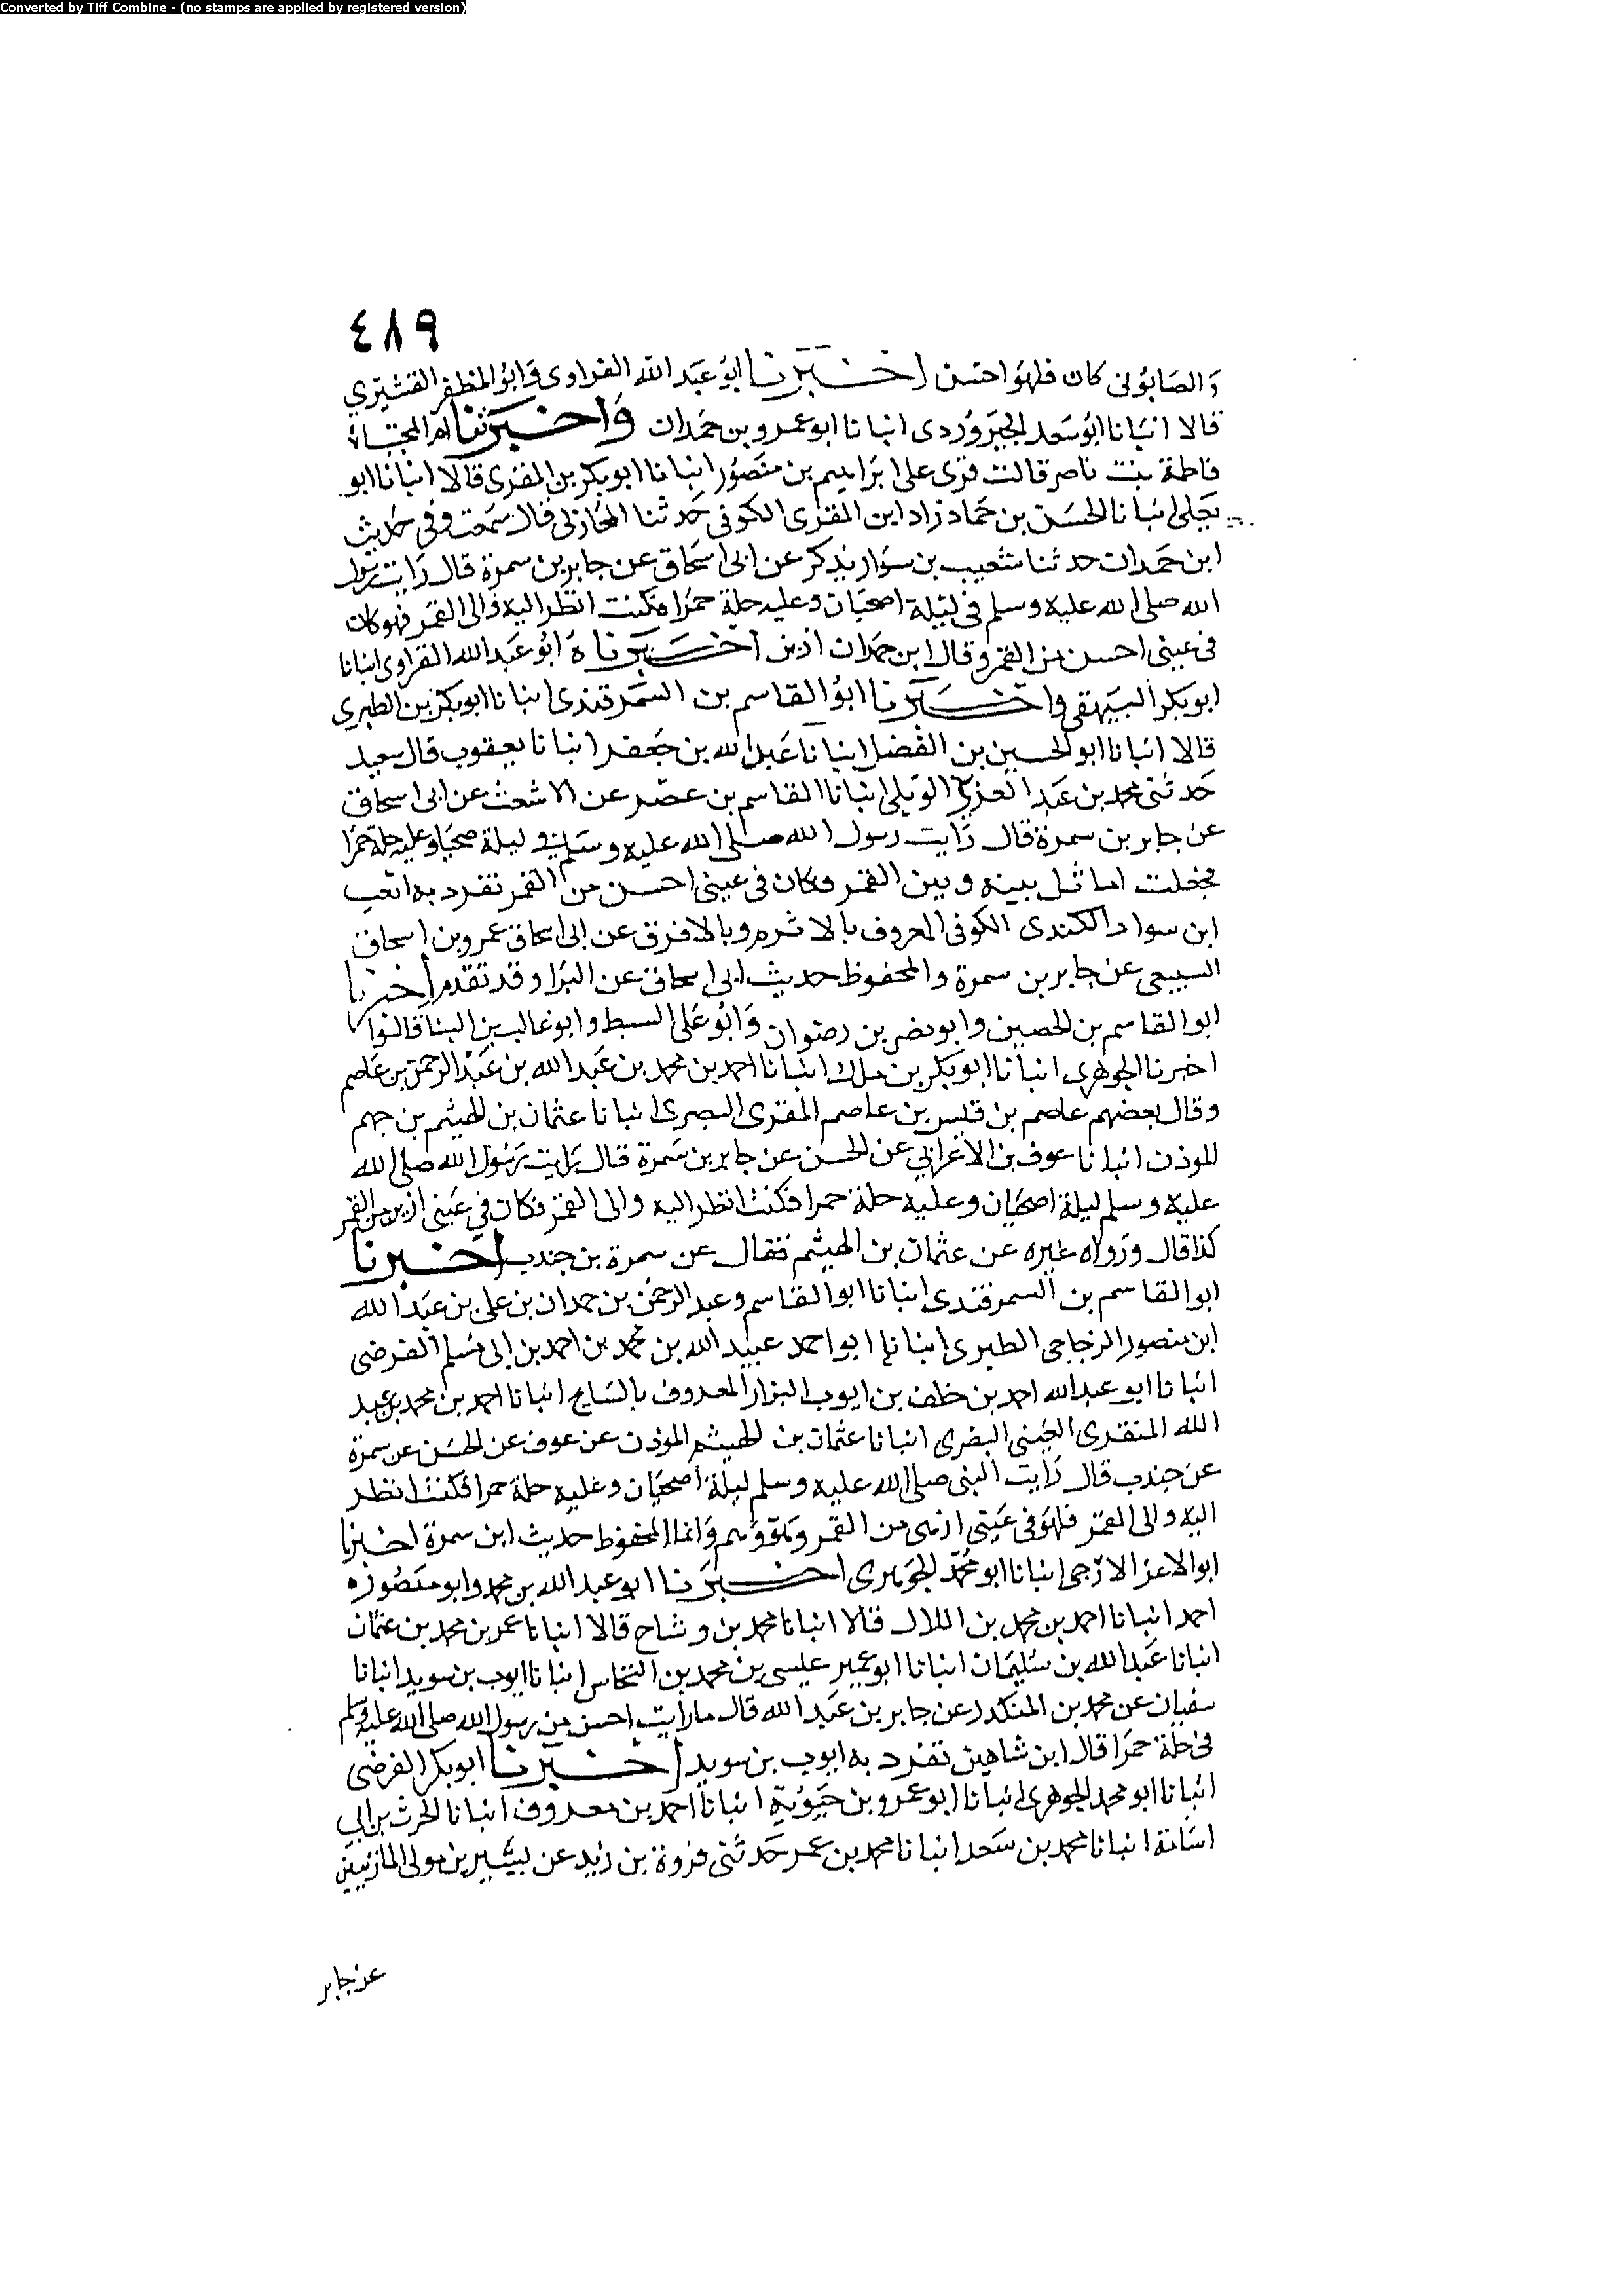 Converted by Tiff Combine - (no stamps are applied by registered version)
٤٨٩
والصابونى كان فلهو احسن اخبرنا ابو عبد الله الفراوى وابو المظفر القشيرى
قالا انبانا ابو سعد الجيزرودى انبانا ابو عمرو بن حمدان واخبرتنا ام المجتباة
فاطمة بنت ناصر قالت قرى على ابراهيم بن منصور انبانا ابو بكر بن المقرى قالا انبانا ابو
يعلى انبانا الحسن بن حماد زاد ابن المقرى الكوفى حدثنا المحازلى قال سمعت وفى حديث
ابن حمدان حدثنا شعيب بن سوار يذكر عن ابى اسحاق عن جابر بن سمرة قال رايت رسول
الله صلى الله عليه وسلم فى ليلة اضحيان وعليه حلة حمرا فكنت انظر اليه والى القمر فهو كان
فى عينى احسن من القمر وقال ابن حمدان ازين اخبرناه ابو عبد الله الفراوى انبانا
ابو بكر البيهقى واخبرنا ابو القاسم بن السمرقندى انبانا ابو بكر بن الطبرى
قالا انبانا ابو الحسين بن الفضل انبانا عبد الله بن جعفر انبانا يعقوب قال سعيد
حدثنى محمد بن عبد العزيز الويلى انبانا القاسم بن غصن عن الاشعث عن ابى اسحاق
عن جابر بن سمرة قال رايت رسول الله صلى الله عليه وسلم فى ليلة ضحيا وعليه حلة حمرا
فجعلت اماثل بينه وبين القمر وكان فى عينى احسن من القمر تفرد به اشعب
ابن سواد الكندى الكوفى المعروف بالاثرم وبالافرق عن ابى اسحاق عمرو بن اسحاق
السبيعى عن جابر بن سمرة والمحفوظ حديث ابى اسحاق عن البرا وقد تقدم اخبرنا
ابو القاسم بن الحصين وابو نصر بن رضوان وابو على السبط وابو غالب بن البنا قالوا
اخبرنا الجوهرى انبانا ابو بكر بن ملك انبانا احمد بن محمد بن عبد الله بن عبد الرحمن بن عاصم
وقال بعضهم عاصم بن قيس بن عاصم المقرى البصرى انبانا عثمان بن الهيثم بن جهم
الموذن انبانا عوف بن الاعرابي عن الحسن عن جابر بن سمرة قال رايت رسول الله صلى الله
عليه وسلم ليلة اضحيان وعليه حلة حمرا فكنت انظر اليه والى القمر فكان في عينى ازين من القمر
كذا قال ورواه غيره عن عثمان بن الهيثم فقال عن سمرة بن جندب اخبرنا
ابو القاسم بن السمرقندى انبانا ابو القاسم وعبد الرحمن بن حمدان بن على بن عبد الله
ابن منصور الزجاجى الطبرى انبانا ابو احمد عبيد الله بن محمد بن احمد بن ابى مسلم الفرضى
انبانا ابو عبد الله احمد بن خلف بن ايوب البزار المعروف بالسايح انبانا احمد بن محمد بن عبد
الله المنقرى البصرى انبانا عثمان بن الهيثم الموذن عن عوف عن الحسن عن سمرة
عن جندب قال رايت النبى صلى الله عليه وسلم ليلة اضحيان وعليه حلة حمرا فكنت انظر
اليه والى القمر فلهو فى عينى ازهى من القمر وهو وهم وانما المحفوظ حديث ابن سمرة اخبرنا
ابو الاعز الازجى انبانا ابو محمد الجوهرى اخبرنا ابو عبد الله بن محمد وابو منصور
احمد انبانا احمد بن محمد بن اللال قالا انبانا محمد بن وشاح قالا انبانا عمر بن محمد بن عثمان
انبانا عبد الله بن سليمان انبانا ابو عمير عيسى بن محمد بن النحاس انبانا ايوب بن سويد انبانا
سفيان عن محمد بن المنكدر عن جابر بن عبد الله قال ما رايت احسن من رسول الله صلى الله عليه وسلم
فى حلة حمرا قال ابن شاهين تفرد به ايوب بن سويد اخبرنا ابو بكر الفرضى
انبانا ابو محمد الجوهرى انبانا ابو عمرو بن حيوية انبانا احمد بن معروف انبانا الحرث بن ابي
اسامة انبانا محمد بن سعد انبانا محمد بن عمر حدثنى فروة بن زيد عن بشير بن مولى المازنيين
عن جابر